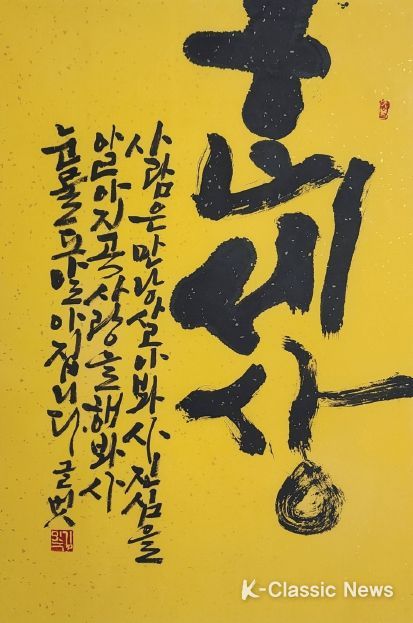 세상
사람은 만낭 살아봐사 진심을
알아지곡 사랑을 해봐사
눈물도 알아집니다 글벗
K-Classic News